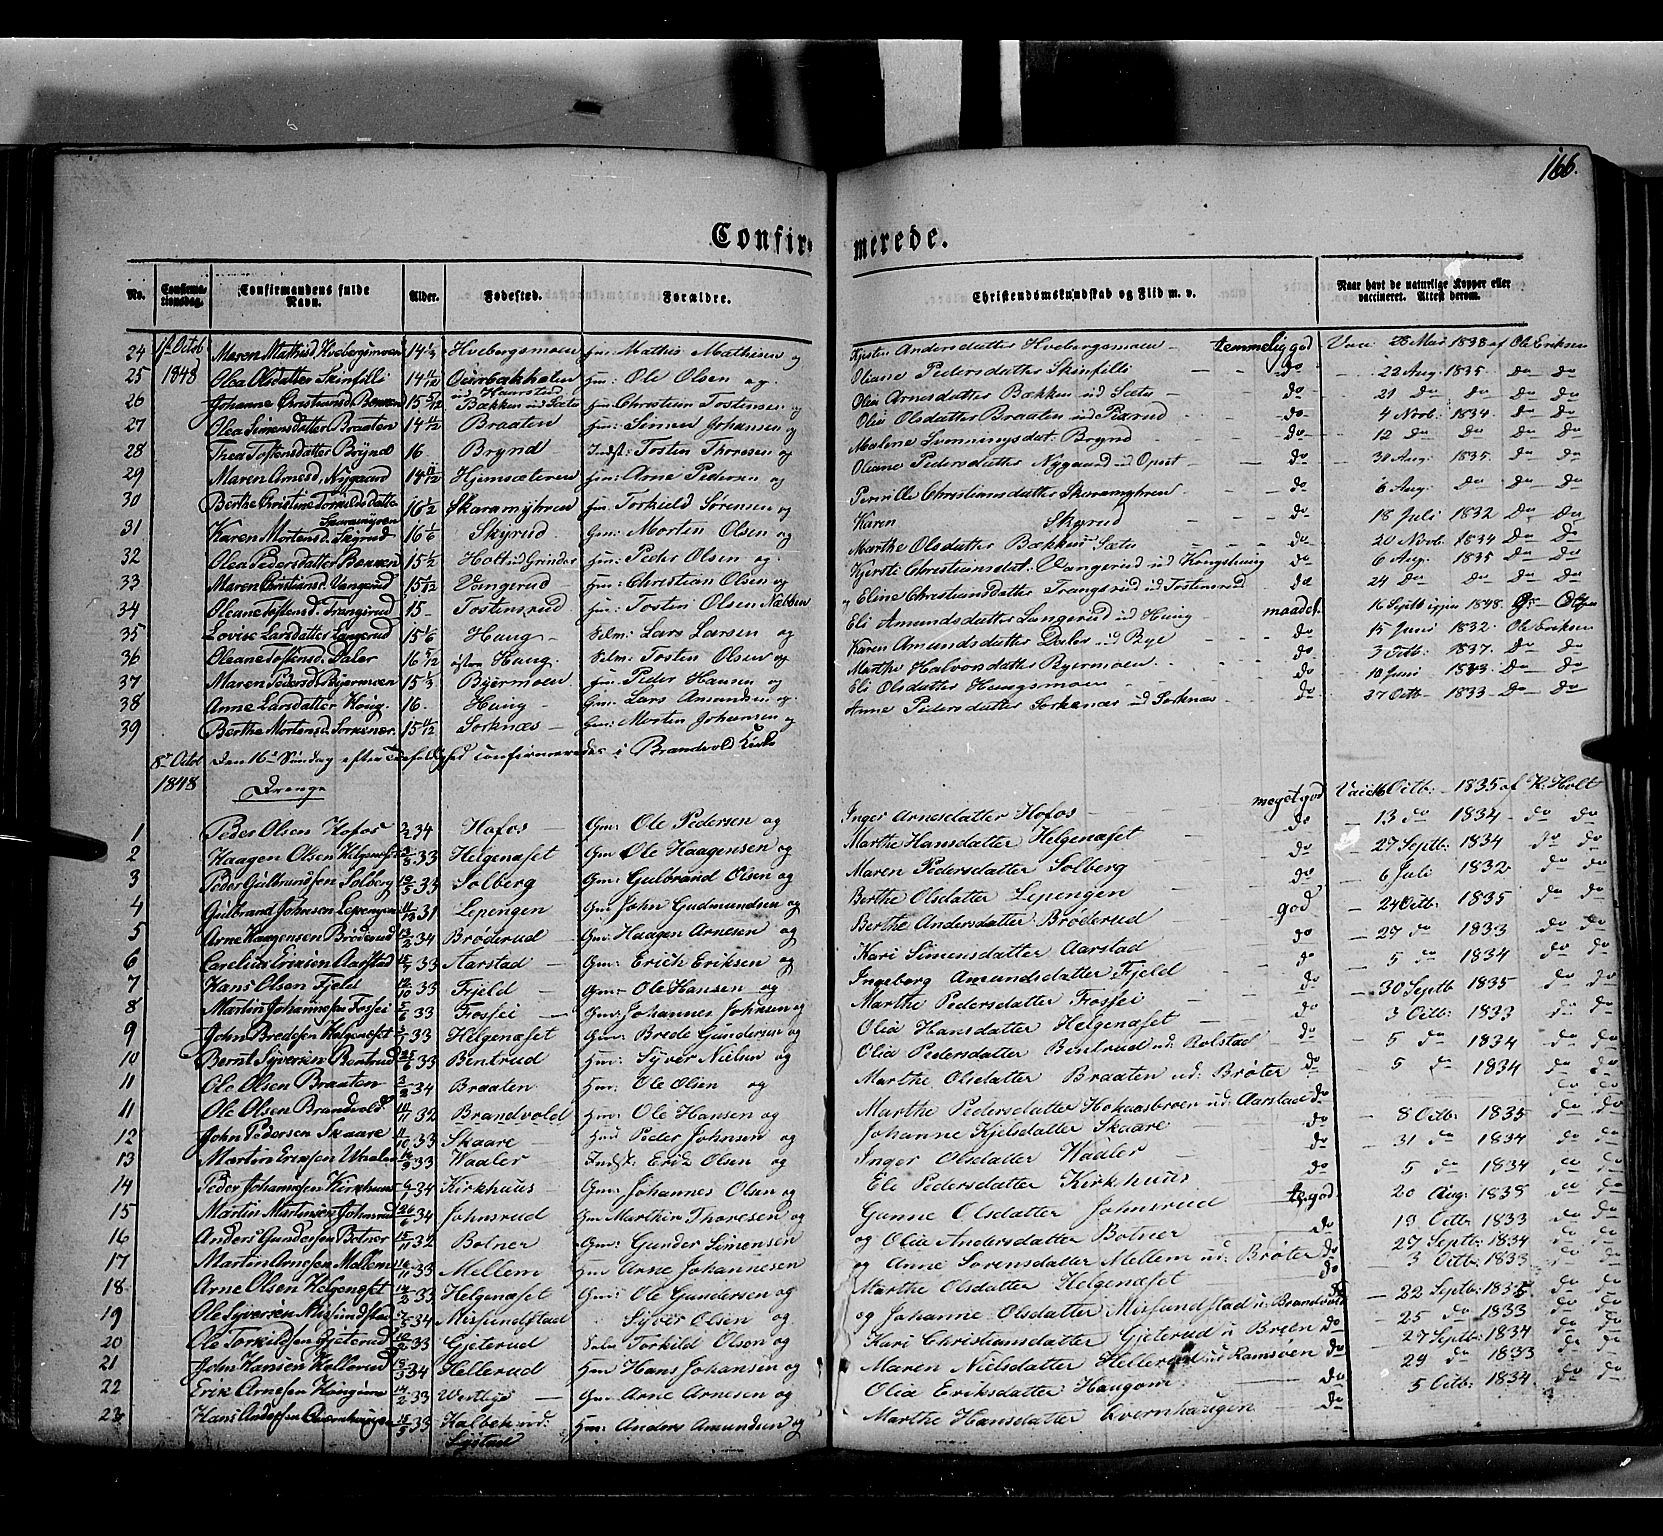 166.
Confirmerede.
No. Confirmationsdag. Confirmandens fulde Navn. Alder. Fødested. Forældre. Christendomskundskab og Flid m. v. Naar havt de naturlige Kopper eller vaccineret. Attest derom.
24 1st Octob Maren Mathisd Hvebergsmoen 14 1/3 Hvebergsmoen Hm: Mathis Mathisen og Kjersti Andersdatter Hvebergsmoen temmelig god Vacc 28 Mai 1838 af Ole Eriksen
25 1848 Olea Olsdatter Skinfilli 14 11/12 Hm: Ole Olsen og Oliane Pedersdatter Skinfilli do 22 Aug. 1835 do do
26 Johanne Christiansd. Bækken 15 5/12 Bækken ud Sæter Hm: Christian Tostensen og Olia Arnesdatter Bækken ud Sæter do 21 do do do do
27 Olea Simensdatter Braaten 14 1/2 Braaten Hm: Simen Johansen og Olia Olsdatter Braaten ud Parud do 4 Novb. 1834 do do
28 Thea Tostensdatter Brynd 16 Brynd Indst: Tosten Thoresen og Malene Brynd do 12 do do do do
29 Maren Arnesd. Nygaard 14 11/12 Hjemsæteren Hm: Arne Pedersen og Oliane Pedersdatter Nygaard ud Opset do 30 Aug. 1835 do do
30 Berthe Christine Torkildsdatter Skaramyren 16 1/2 Skaramyhren Hm: Torkield Sørensen og Pernille Christiansdatter Skaramyhren do 6 Aug. do do do
31 Karen Mortensd. Skyrud 16 1/6 Skyrud Gm: Morten Olsen og Karen Skyrud do 18 Juli 1832 do do
32 Olea Pedersdatter Bækken 15 1/2 Holt ud Grinder Hm: Peder Olsen og Marthe Olsdatter Bækken Sæter do 20 Novb. 1834 do do
33 Maren Christiansd. Vangerud 15 5/12 Vangerud Hm: Christian Olsen og Kjersti Christiansdat. Vangerud ud Kongshaug do 6 Aug. 1835 do do
34 Oleane Tostensd. Trangsrud 15 Tostensrud Hm: Tosten Olsen Nabben og Eline Christiansdatter Trangsrud ud Tostensrud do 24 do do do do
35 Lovise Larsdatter Langerud 15 1/6 Haug Selm: Lars Larsen og Eli Amundsdatter Langerud ud Haug maadel. 16 Septb igjen 1848
36 Oleane Tostensd. Daler 16 5/12 Haug Selm: Tosten Olsen og Karen Amundsdatter Daler ud Bye do 15 Juni 1832 Ole Eriksen
37 Maren Pedersd. Byermoen 15 1/3 Byermoen Hm: Peder Hansen og Marthe Halvorsdatter Byermoen do 3 Octb. 1837 do do
38 Anne Larsdatter Haug. 16. Haug Gm: Lars Amundsen og Eli Olsdatter Haugsmoen do 10 Juni 1833 do do
39 Berthe Mortensd. Sorknæs 15 11/12 Sorknæs Gm: Morten Johansen og Anne Pedersdatter Sorknæs ud Sorknæs do 27 Octb 1833 do do
8de Octob 1848 Den 16de Søndag efter Trefoldighed confirmeredes i Brandvold Kirke
Drenge
1 Peder Olsen Hofos 34 Hofos Gm: Ole Pedersen og Inger Arnesdatter Hofos meget god Vacc 16 Octb. 1835 af K: Holt
2 Haagen Olsen Helgenæset 33 Helgenæset Gm Ole Haagensen og Marthe Hansdatter Helgenæset do 13 do 1834 do do
3 Peder Gulbrandsen Solberg 33 Solberg Gm: Gulbrand Olsen og Maren Pedersdatter Solberg do 27 Septb: 1834 do do
4 Gulbrand Johnsen Lepengen 31 Lepengen Gm John Gudmundsen og Berthe Olsdatter Lepengen do 6 Juli 1832 do do
5 Arne Haagensen Brøderud 34 Brøderud Gm: Haagen Arnesen og Berthe Andersdatter Brøderud god 24 Octb: 1835 do do
6 Carelius Ericksen Aarstad 33 Aarstad Gm: Erich Eriksen og Kari Simensdatter Aarstad do 27 do 1833 do do
7 Hans Olsen Fjeld 33 Fjeld Gm: Ole Hansen og Ingeborg Amundsdatter Fjeld do 5 do 1834 do do
8 Martin Johannesen Fossei 33 Fossei Gm: Johannes Johnsen og Marthe Pedersdatter Fossei do 30 Septb 1835 do do
9 John Bredesen Helgenæset 33 Helgenæset Gm: Brede Gundersen og Olia Hansdatter Helgenæset do 3 Octb: 1833 do do
10 Bernt Syversen Bentrud 33 Bentrud Hm: Syver Nielsen og Olia Pedersdatter Bentrud ud: Aolstad do 5 do 1834 do do
11 Ole Olsen Braaten 34 Braaten Hm: Ole Olsen og Marthe Olsdatter Braaten ud: Brøter do 5 do 1834 do do
11 Ole Olsen Brandvold 32 Brandvold Hm: Ole Hansen og Marthe Pedersdatter Hokaasbroen ud: Aarstad do 8 Octb: 1835 do do
12 John Pedersen Skaare 33 Skaare Hm Peder Johnsen og Johanne Kjelsdatter Skaare do 31 do 1834 do do
13 Martin Ericksen Waaler 33 Waaler Indst: Erik Olsen og Inger Olsdatter Waaler do 5 do 1834 do do
14 Peder Johannesen Kirkhuus 34 Kirkhuus Gm: Johannes Olsen og Eli Pedersdatter Kirkhuus do 20 Aug: 1835 do do
15 Martin Martinsen Johnsrud 34 Johnsrud Gm Marthin Thoresen og Gunne Olsdatter Johnsrud te. god 19 Octb: 1833 do do
16 Anders Gundersen Botner 32 Botner Gm: Gunder Simensen og Olia Andersdatter Botner do 27 Septb: 1834 do do
17 Martin Arnesen Mellem 33 Mellem Hm Arne Johannesen og Anne Sørensdatter Mellem ud: Brøter do 3 Octb: 1833 do do
18 Arne Olsen Helgenæset 33 Helgenæset Gm: Ole Gundersen og Marthe Olsdatter Helgenæset do 22 Septb: 1835 do do
19 Ole Syversen Missundstad 34 Missundstad Syver Olsen og Johanne Olsdatter Missundstad u: Brandvold do 25 do 1833 do do
20 Ole Torkildsen Gjeterud 33 Gjeterud Selm Torkild Olsen og Kari Christiansdatter Gjeterud u Breen do 27 Septb: 1834 do do
21 John Hansen Hellerud 34 Hellerud Hm Hans Johansen og Maren Nielsdatter Hellerud ud Ramsøen do 29 do 1833 do do
22 Erik Arnesen Haugom 33 Westbye Gm: Arne Arnesen og Olia Eriksdatter Haugom do 5 Octb: 1834 do do
23 Hans Andersen Qvernhaugen 33 Kalbek ud: Hm: Anders Amundsen og Marthe Hansdatter Qvernhaugen do